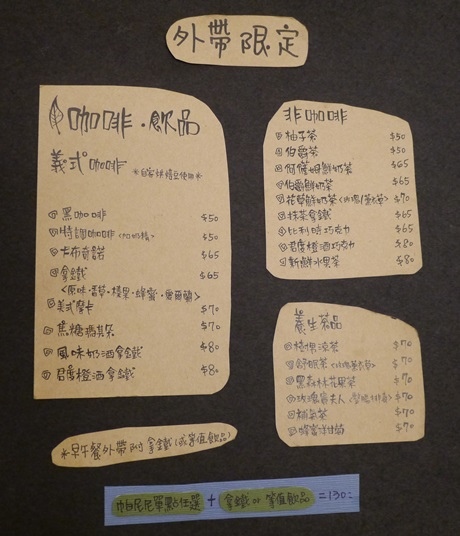 外帶限定
咖啡·飲品
義式咖啡
*自家烘焙豆使用*
黑咖啡 $50
特調咖啡<加奶精> $50
卡布奇諾 $65
拿鐵 $65
<原味·香草·榛果·蜂蜜·
美式摩卡 $70
焦糖瑪其朵 $70
風味奶酒拿鐵 $80
君度橙酒拿鐵 $80
*早午餐外帶附拿鐵(或等值飲品)
非咖啡
柚子茶 $50
伯爵茶 $50
阿薩姆鮮奶茶 $65
伯爵鮮奶茶 $65
花草鮮奶茶 $70
抹茶拿鐵 $65
比利時巧克力 $65
君度橙酒巧克力 $80
新鮮水果茶 $80
養生茶品
$70
舒眠茶 $70
黑森林花果茶 $70
玫瑰貴夫人 $70
補氣茶 $70
蜂蜜洋甘菊 $70
帕尼尼單點任選 + 拿鐵 or 等值飲品 =130-